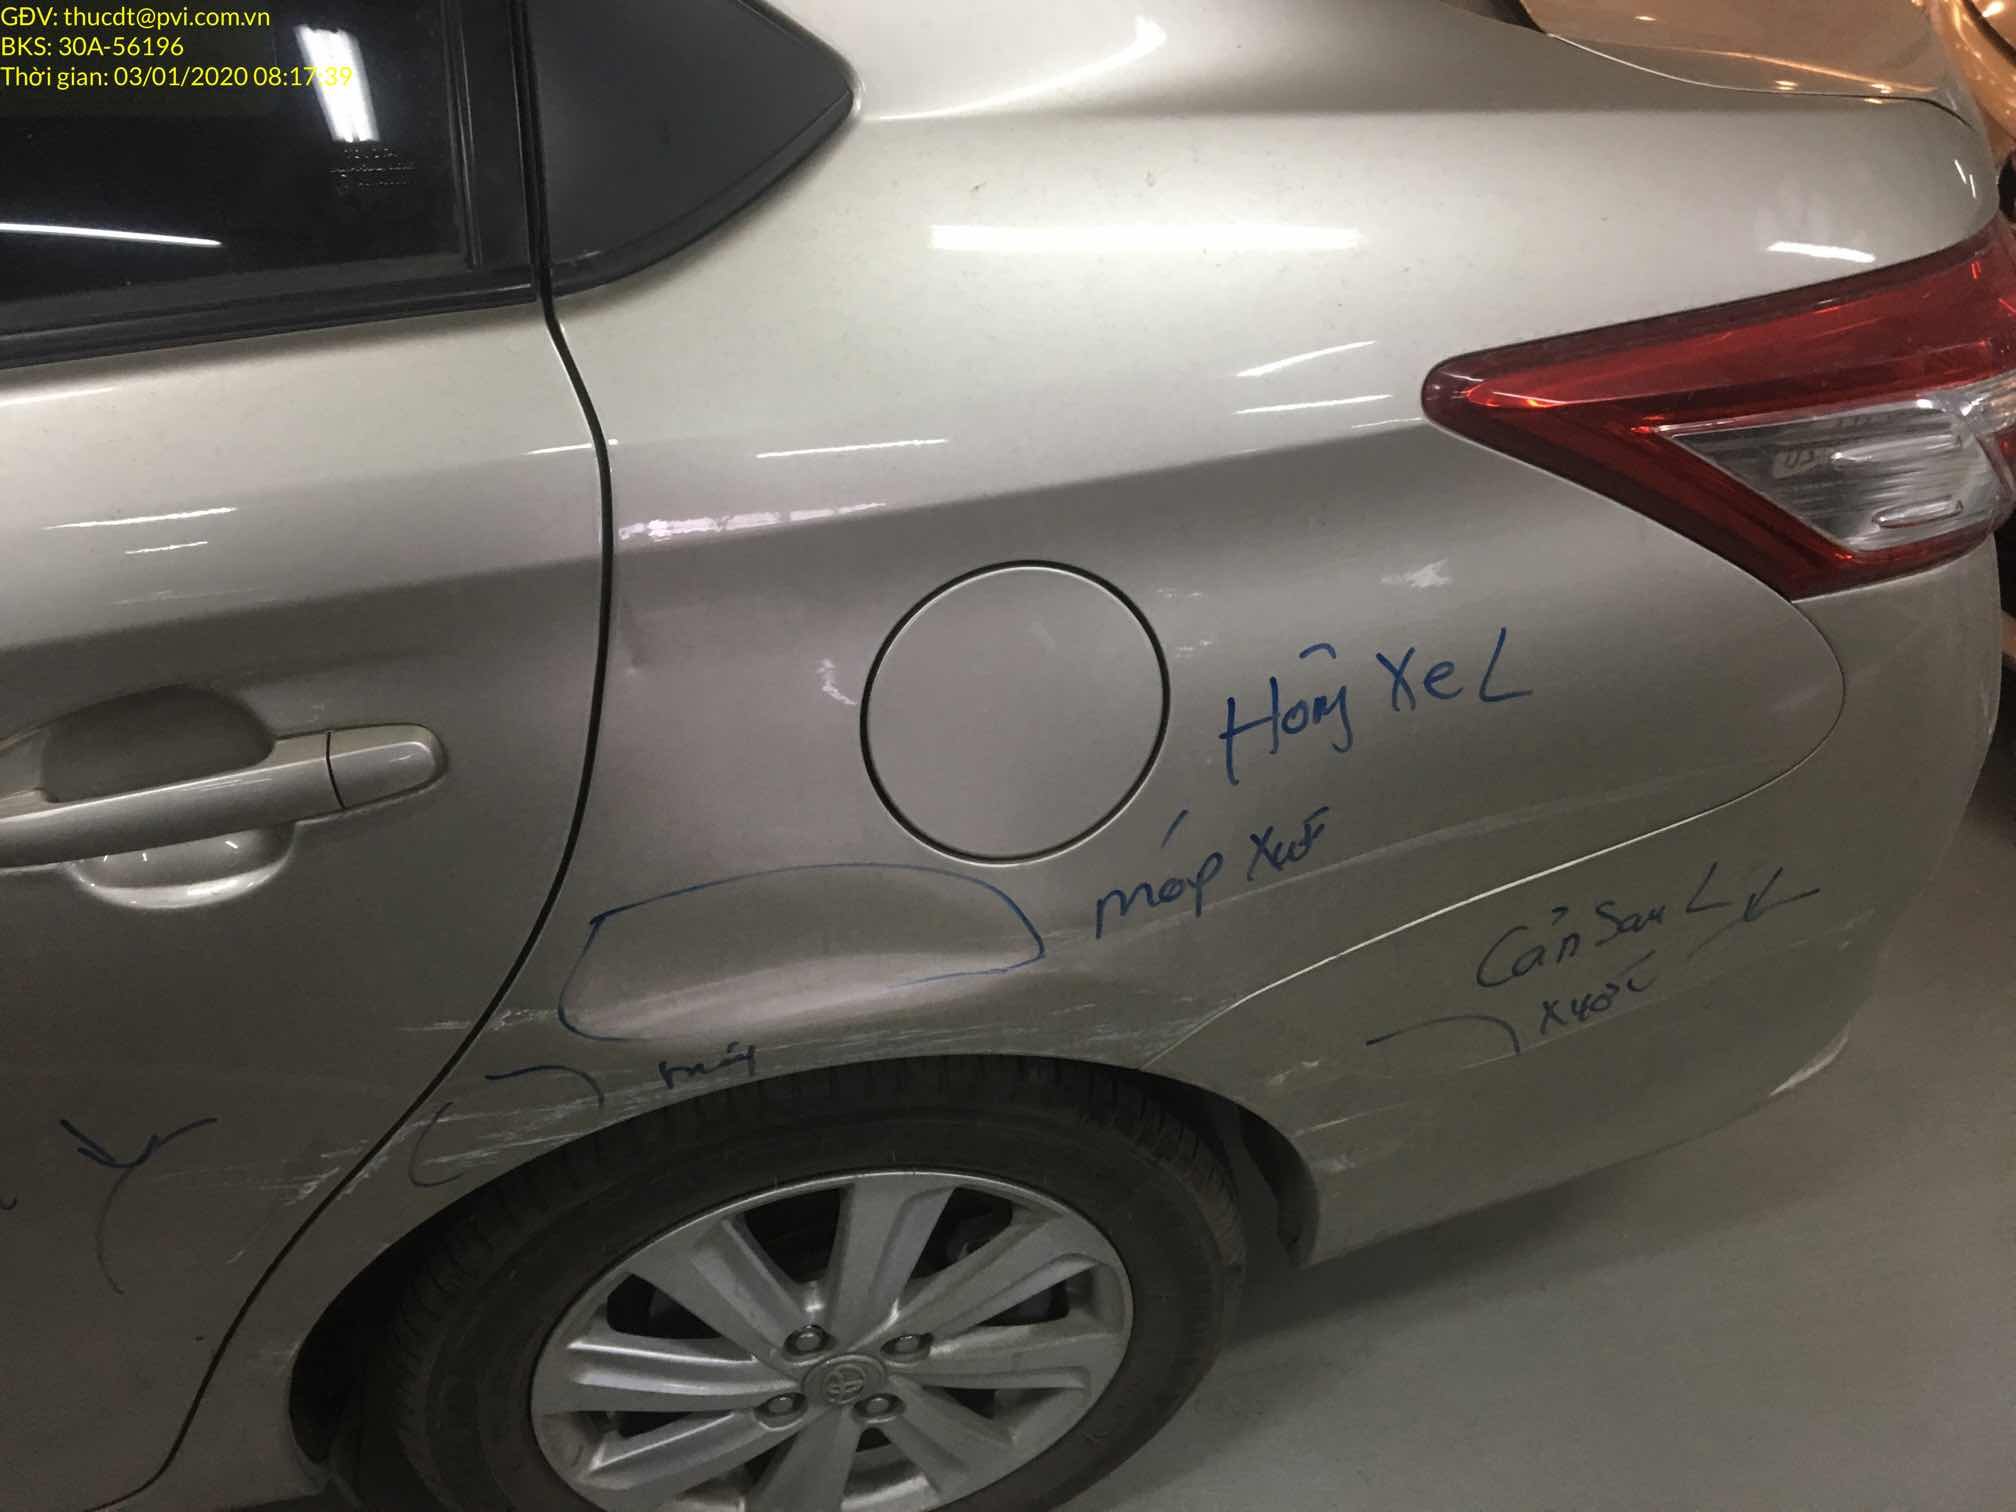 GĐV: thucdt@pvi.com.vn
BKS: 30A-56196
Thời gian: 03/01/2020 08:17:39
Hông Xe L
móp xướ
Cản Sau L
xước
móp